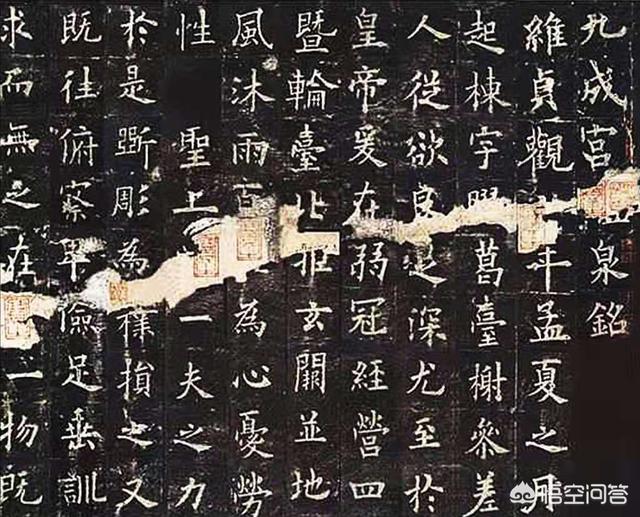 九成宮泉銘
維貞觀年孟夏之月
起棟宇葛臺榭參差
人從欲良足深尤至於
皇帝爰在弱冠經營四
暨輪臺北拒玄闕並地
風沐雨百為心憂勞
性 聖上一夫之力
於是斲彫為樸損之又
既往俯察卑儉足垂訓
求而無之在一物既
悟空问答